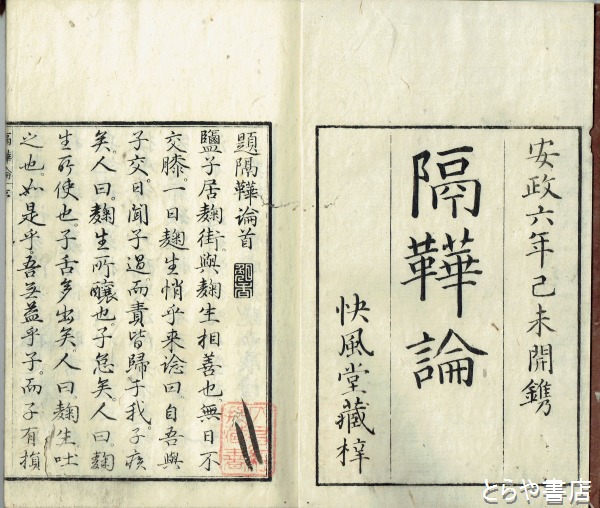 安政六年己未開鐫
隔鞾論
快風堂藏梓
題隔鞾論首
鹽子居麹街與麹生相善也無日不
交膝。一日麹生悄乎来諗曰自吾與
子交。日聞子過而責皆歸于我。子疾
矣。人曰。麹生所釀也。子怠矣。人曰麹
生所使也。子舌多出矣。人曰。麹生吐
之也。如是乎吾無益乎子。而子有損
とらや書店